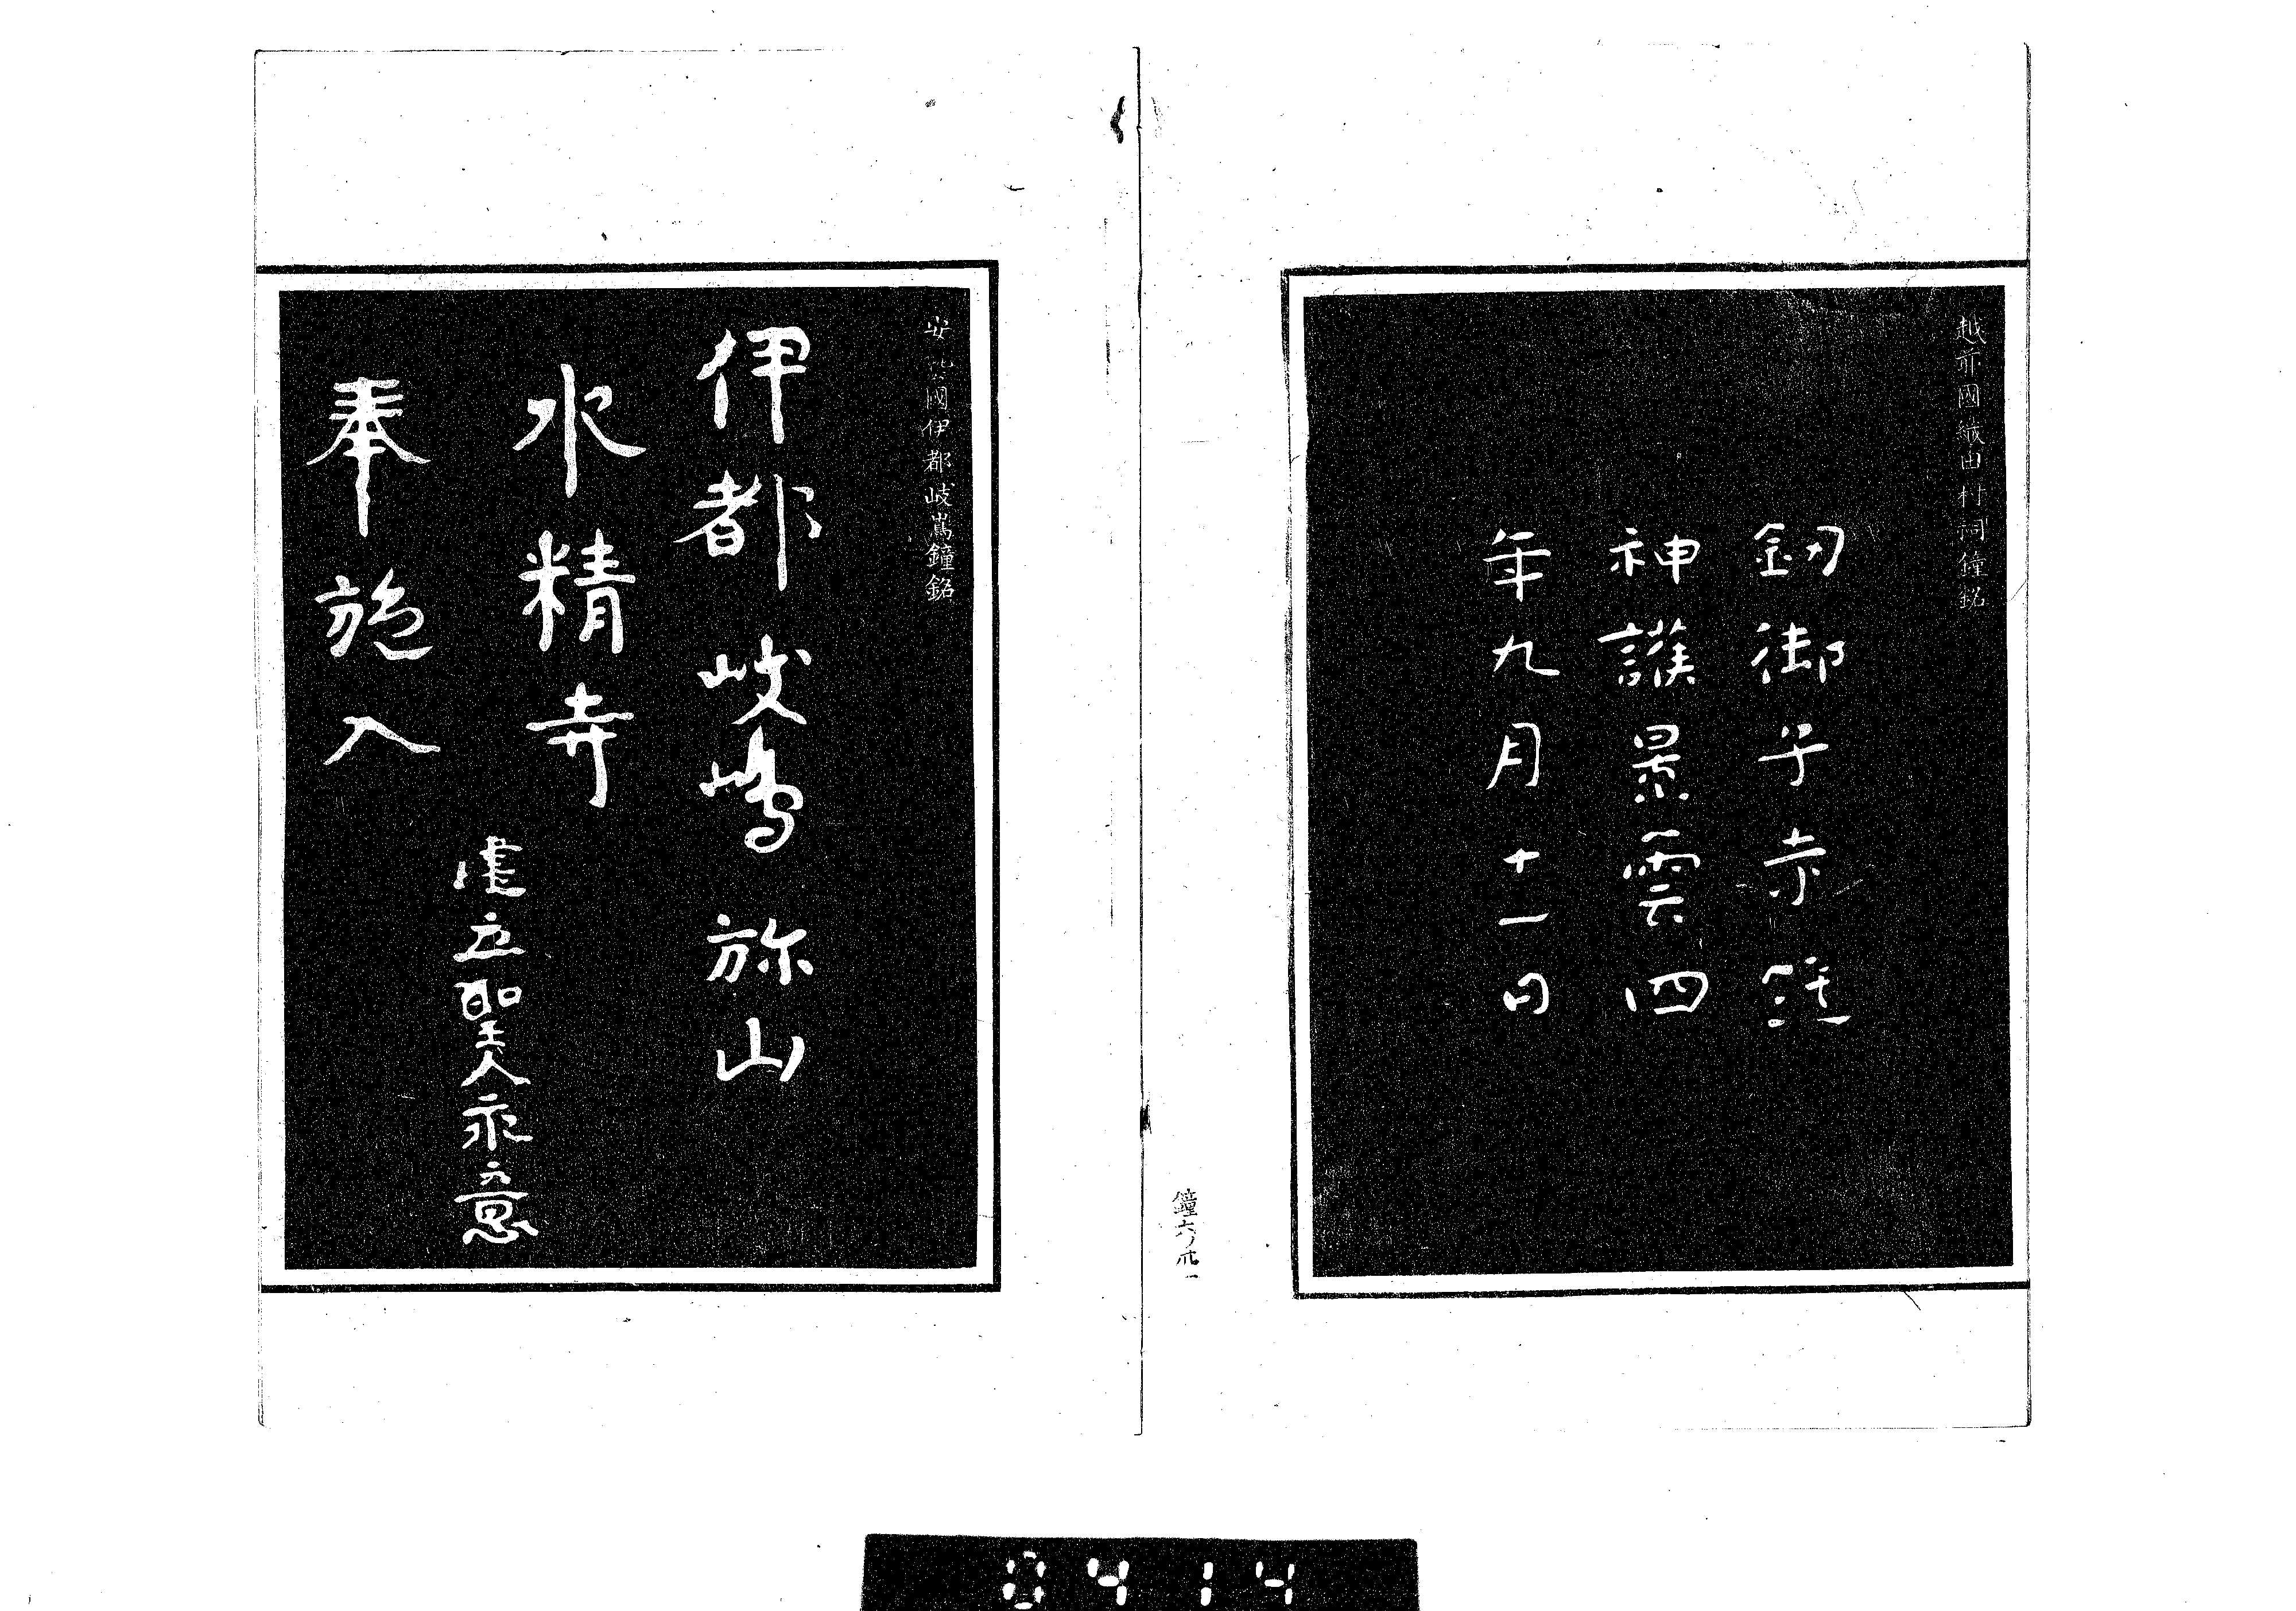 越前國織田村祠鐘銘
釼御子寺鐘
神護景雲四
年九月十一日
鐘六ノ卅一
安藝國伊都岐嶌鐘銘
伊都岐嶋弥山
水精寺
建立聖人永意
奉施入
0414